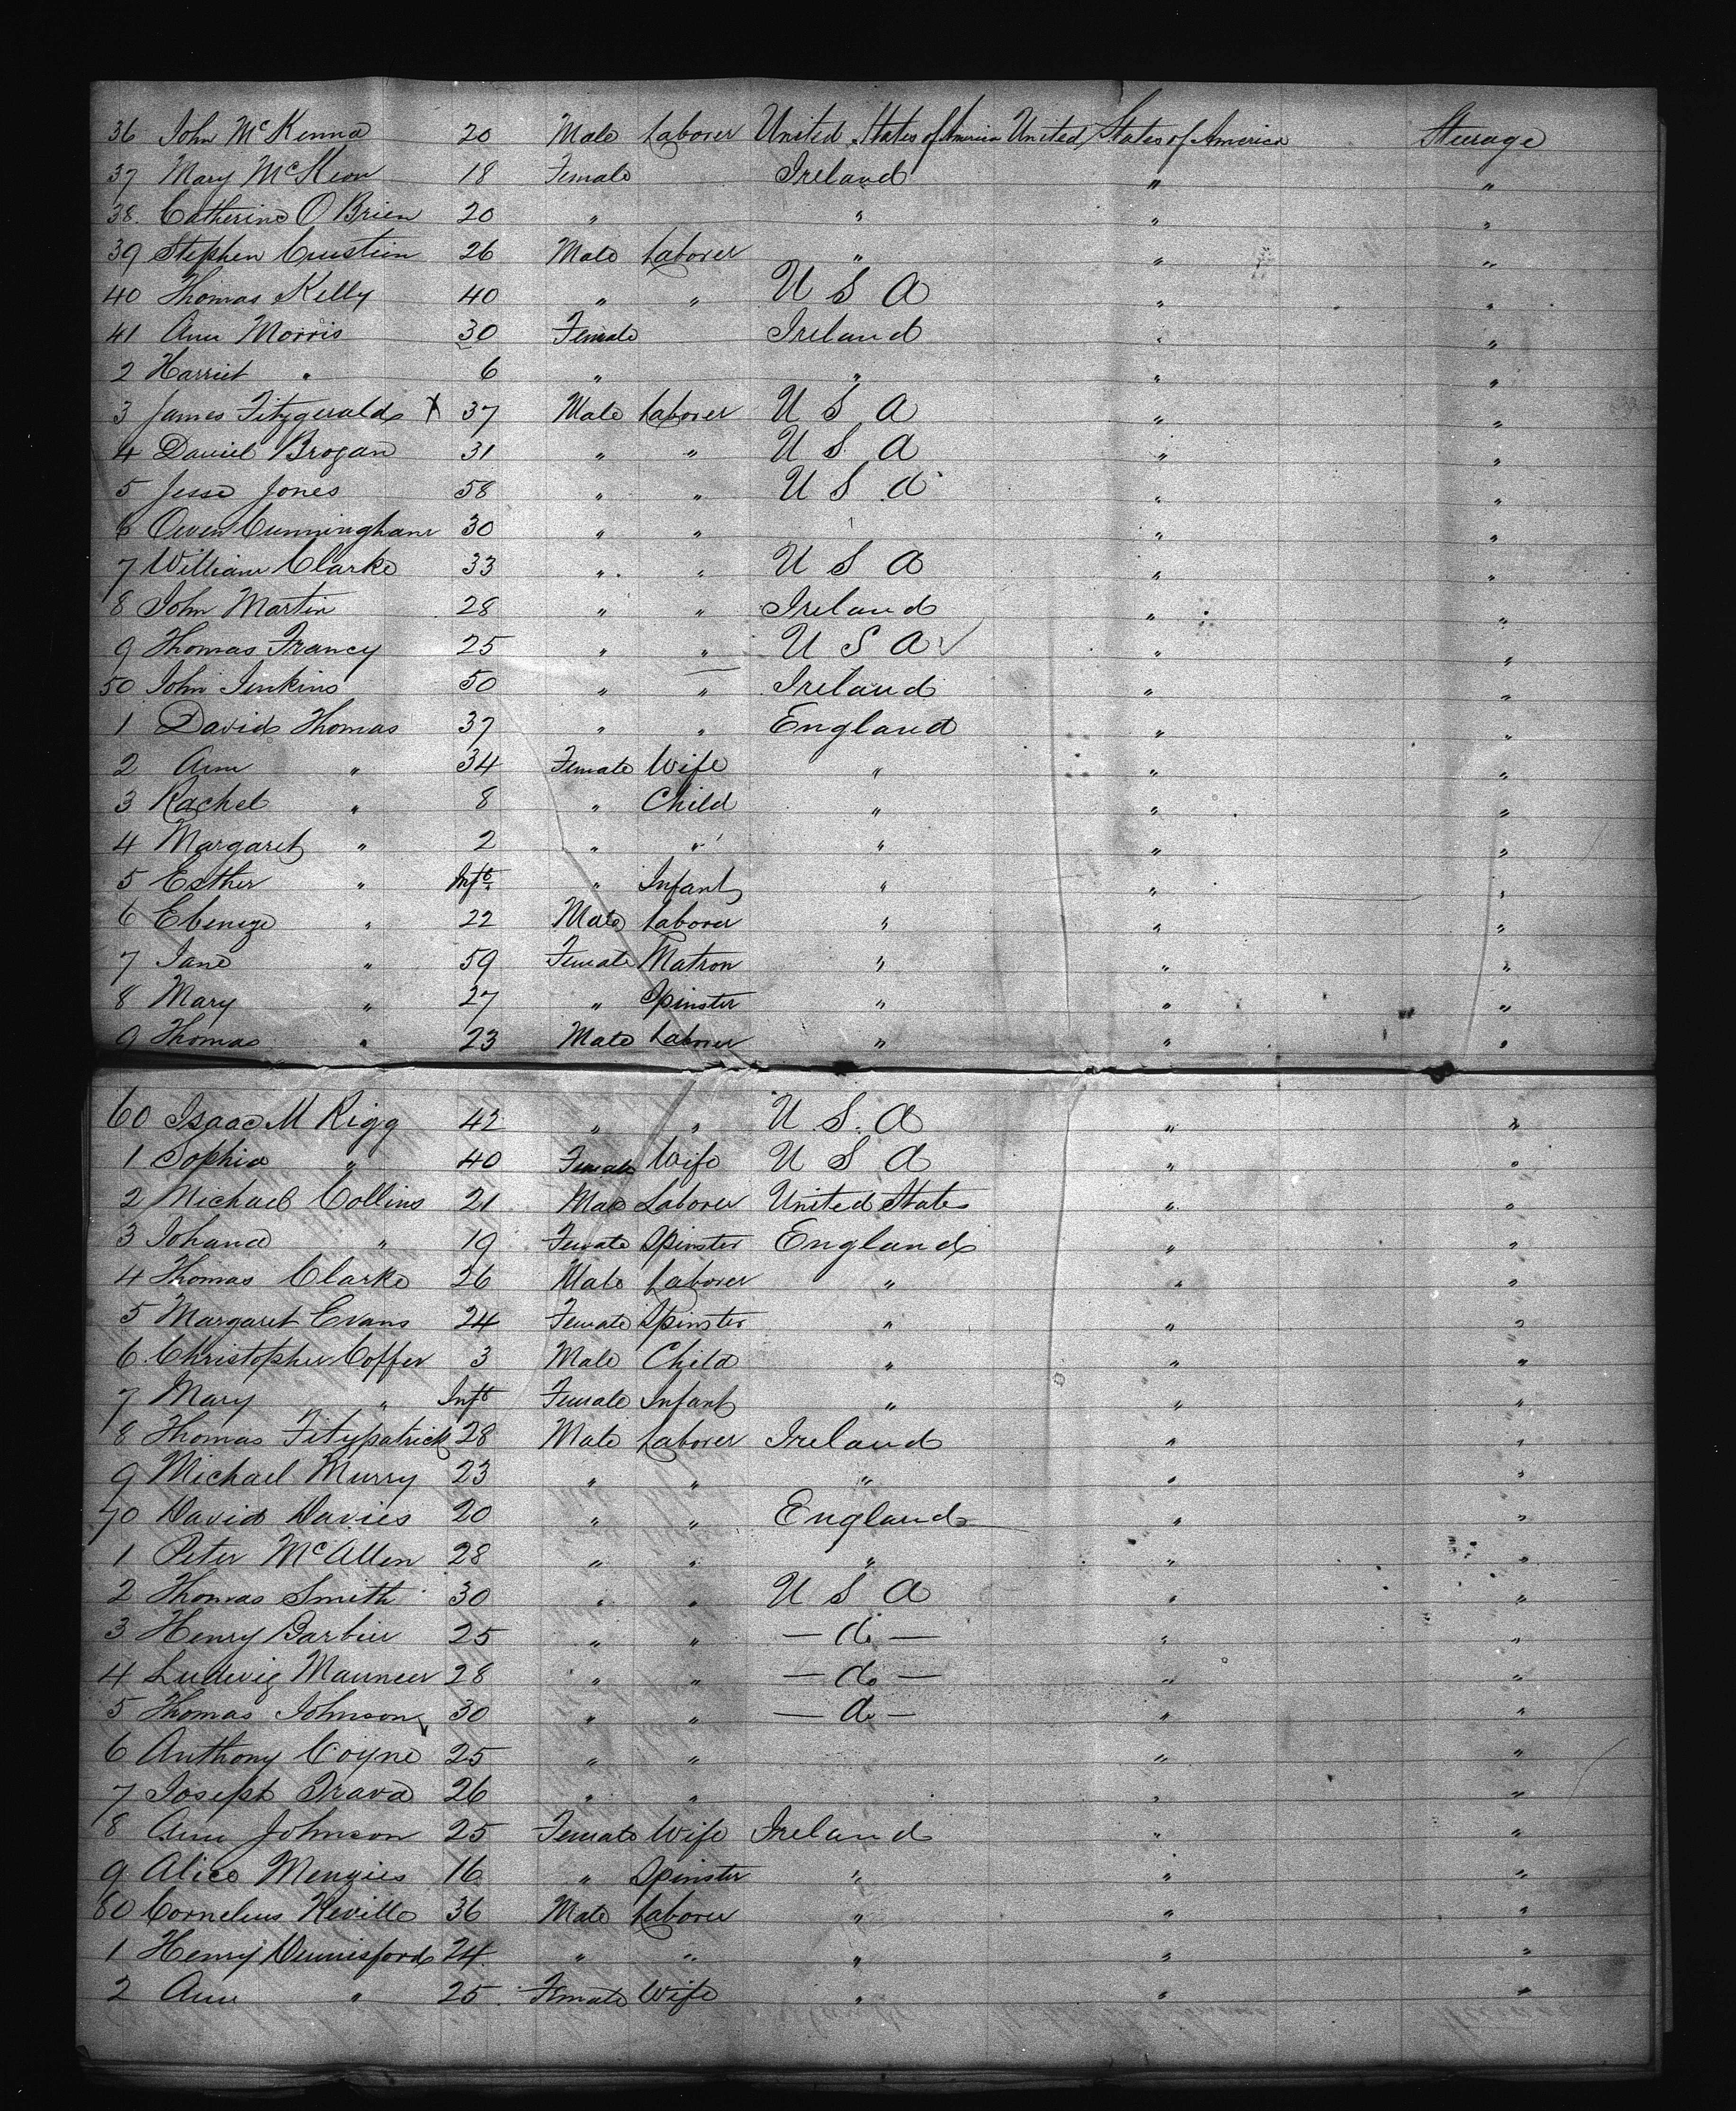 36 John McKenna 20 Male Laborer United States of America United States of America Steerage
37 Mary McKeon 18 Female Ireland " "
38. Catherine O Brien 20 " " " "
39 Stephen 26 Male Laborer " " "
40 Thomas Kelly 40 " " U S A " "
41 Ann Morris 30 Female Ireland " "
2 Harriet " 6 " " " "
3 James Fitzgerald X 37 Male Laborer U S A " "
4 Daniel Brogan 31 " " U S A " "
5 Jesse Jones 58 " " U S A " "
6 Owen Cunningham 30 " " " "
7 William Clarke 33 " " U S A " "
8 John Martin 28 " " Ireland " "
9 Thomas Francy 25 " " U S A " "
50 John Jenkins 50 " " Ireland " "
1 David Thomas 37 " " England " "
2 Ann " 34 Female Wife " " "
3 Rachel " 8 " Child " " "
4 Margaret " 2 " " " " "
5 Esther " Inft " Infant " " "
6 Ebeneze " 22 Male Laborer " " "
7 Jane " 59 Female Matron " " "
8 Mary " 27 " Spinster " " "
9 Thomas " 23 Male Laborer " " "
60 Isaac M Rigg 42 " " U S A " "
1 Sophia " 40 Female Wife U S A " "
2 Michael Collins 21 Male Laborer United States " "
3 Johana " 19 Female Spinster England " "
4 Thomas Clarke 26 Male Laborer " " "
5 Margaret Evans 24 Female Spinster " " "
6 Christopher Coffer 3 Male Child " " "
7 Mary " Inft Female Infant " " "
8 Thomas Fitzpatrick 28 Male Laborer Ireland " "
9 Michael Murry 23 " " " " "
70 David Davies 20 " " England " "
1 Peter McAllen 28 " " " " "
2 Thomas Smith 30 " " U S A " "
3 Henry Barbier 25 " " — do — " "
4 Ludwig 28 " " — do — " "
5 Thomas Johnson 30 " " — do — " "
6 Anthony Coyne 25 " " " "
7 Joseph 26 " " " "
8 Ann Johnson 25 Female Wife Ireland " "
9 Alice Menzies 16 " Spinster " " "
80 Cornelius Neville 36 Male Laborer " " "
1 Henry Dunnisford 24 " " " " "
2 Ann " 25 Female Wife " " "